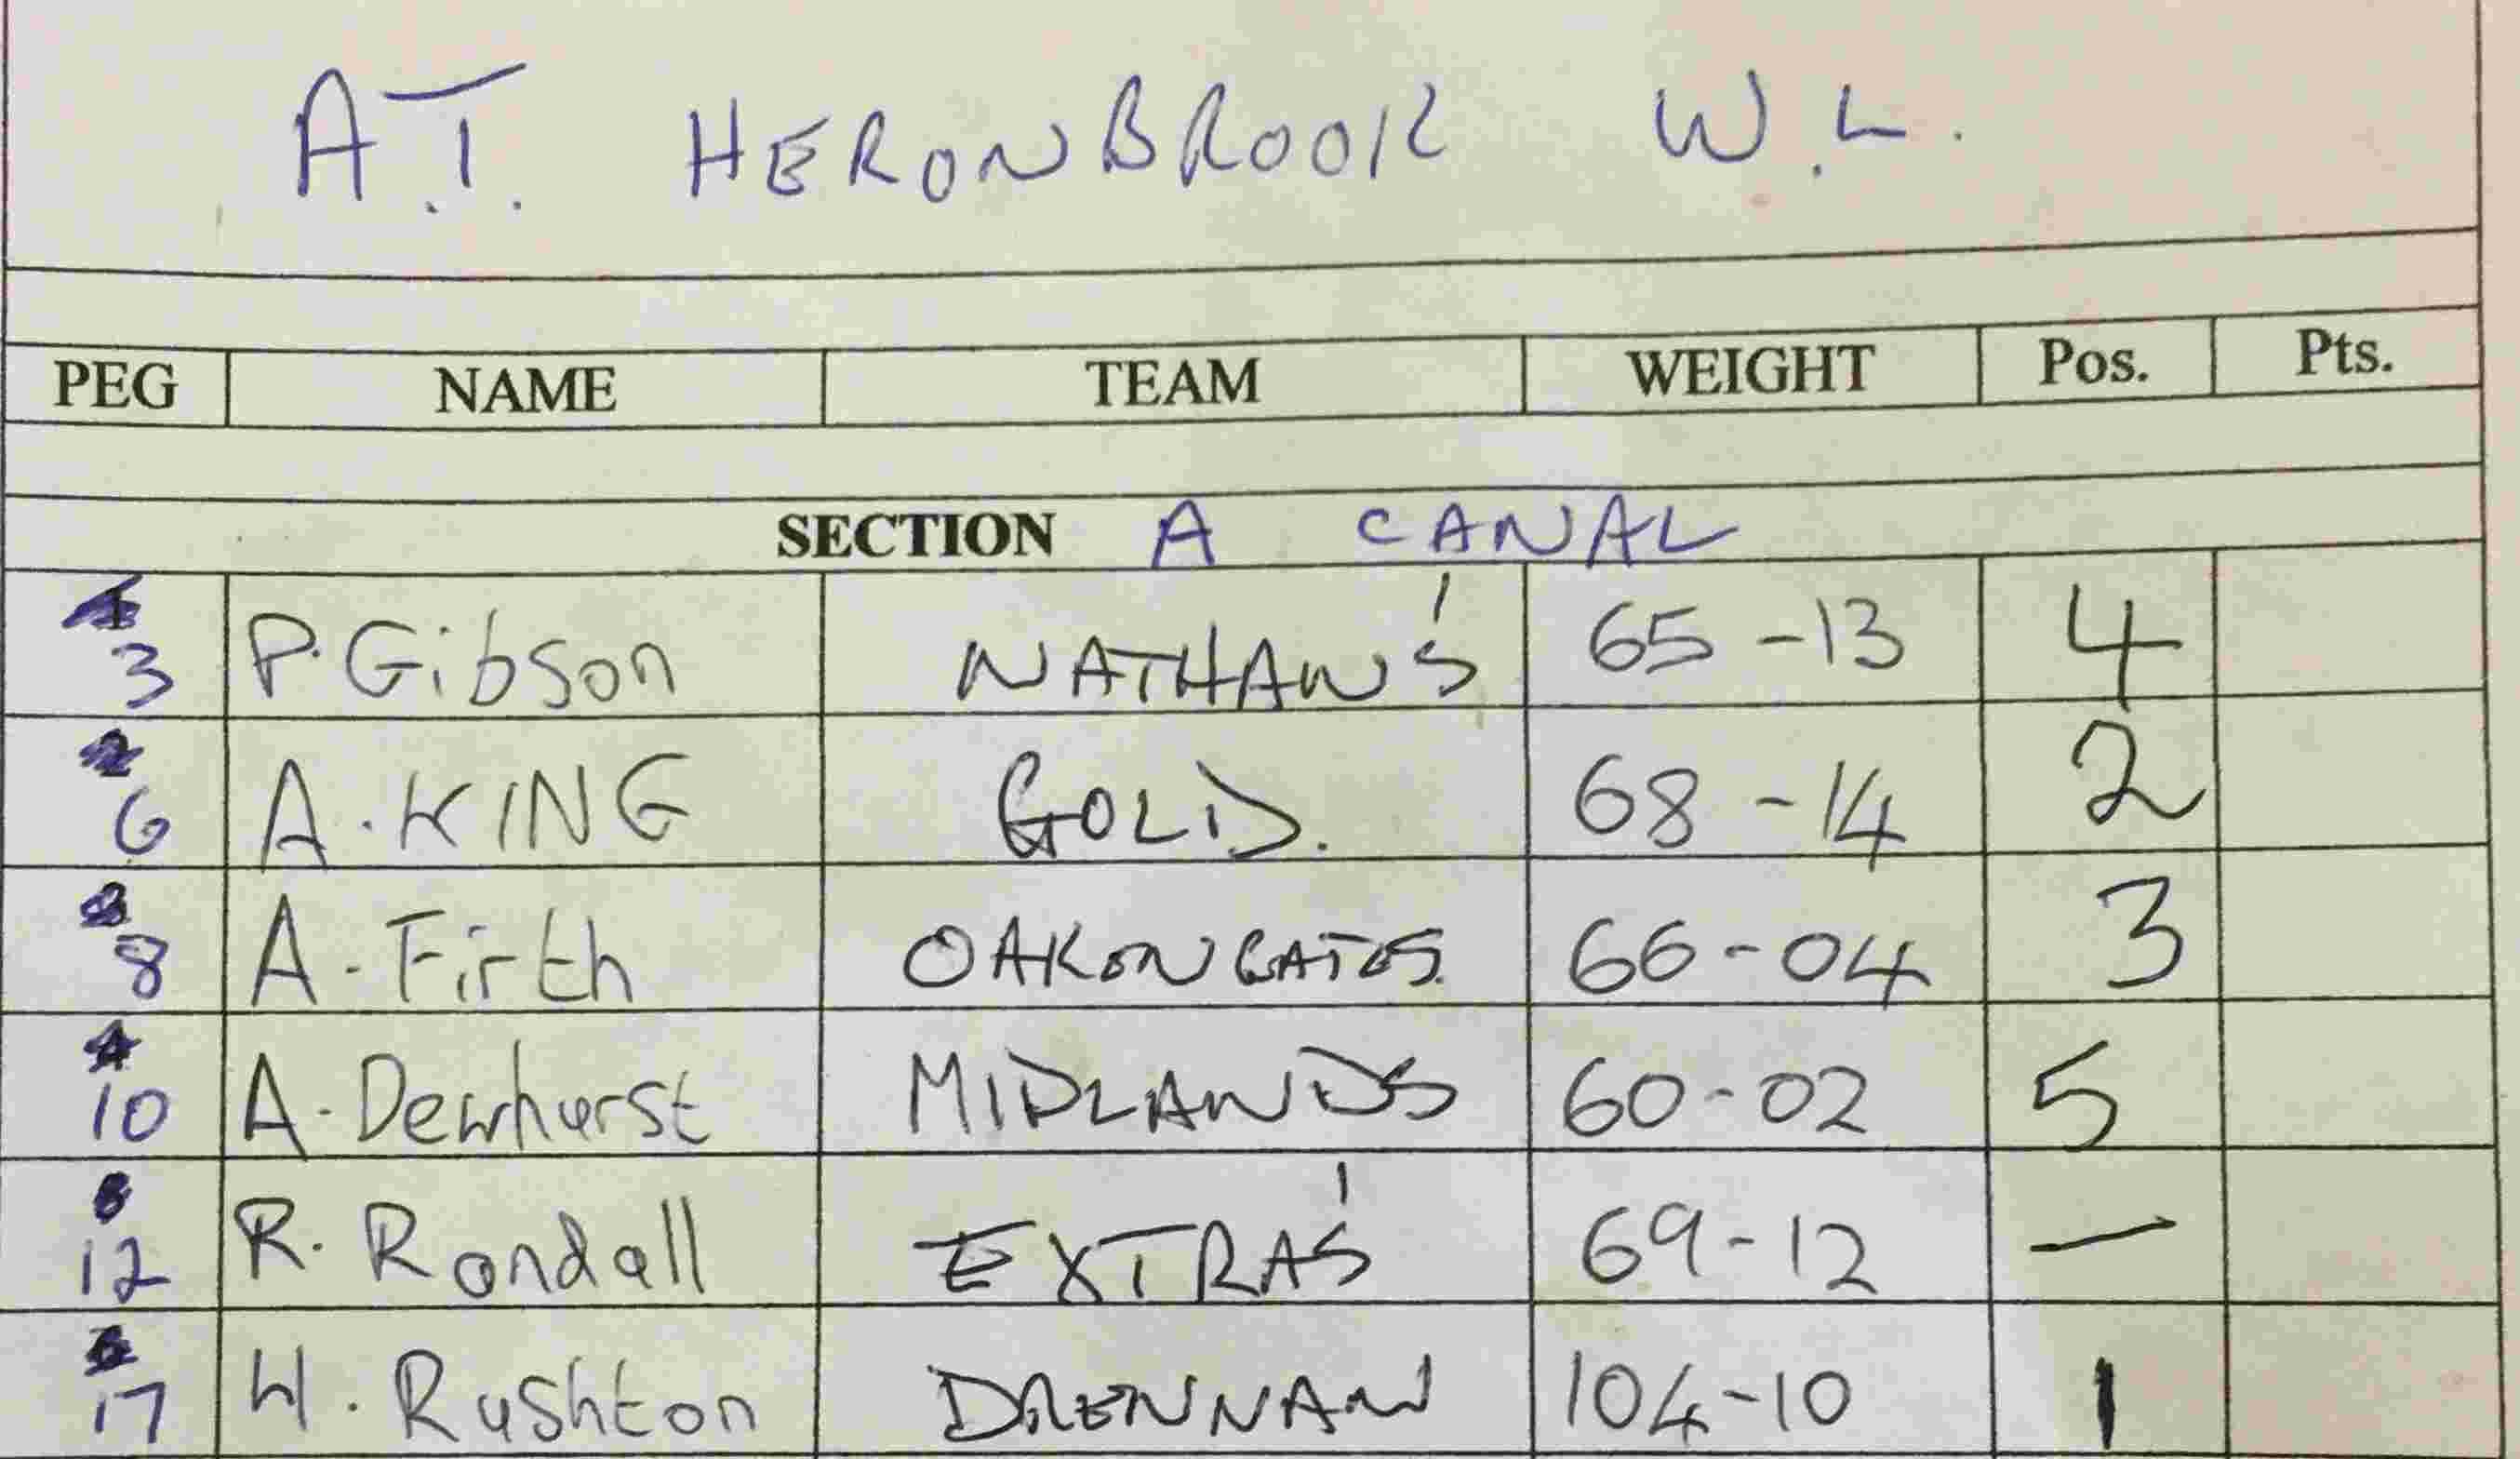 A.T. HERONBROOK W.L.
PEG NAME TEAM WEIGHT Pos. Pts.
SECTION A CANAL
3 P. Gibson NATHAN'S 65-13 4
6 A. KING GOLD. 68-14 2
8 A. Firth OAKENGATES 66-04 3
10 A. Dewhurst MIDLANDS 60-02 5
12 R. Randall EXTRA'S 69-12 —
17 H. Rushton DRENNAN 104-10 1